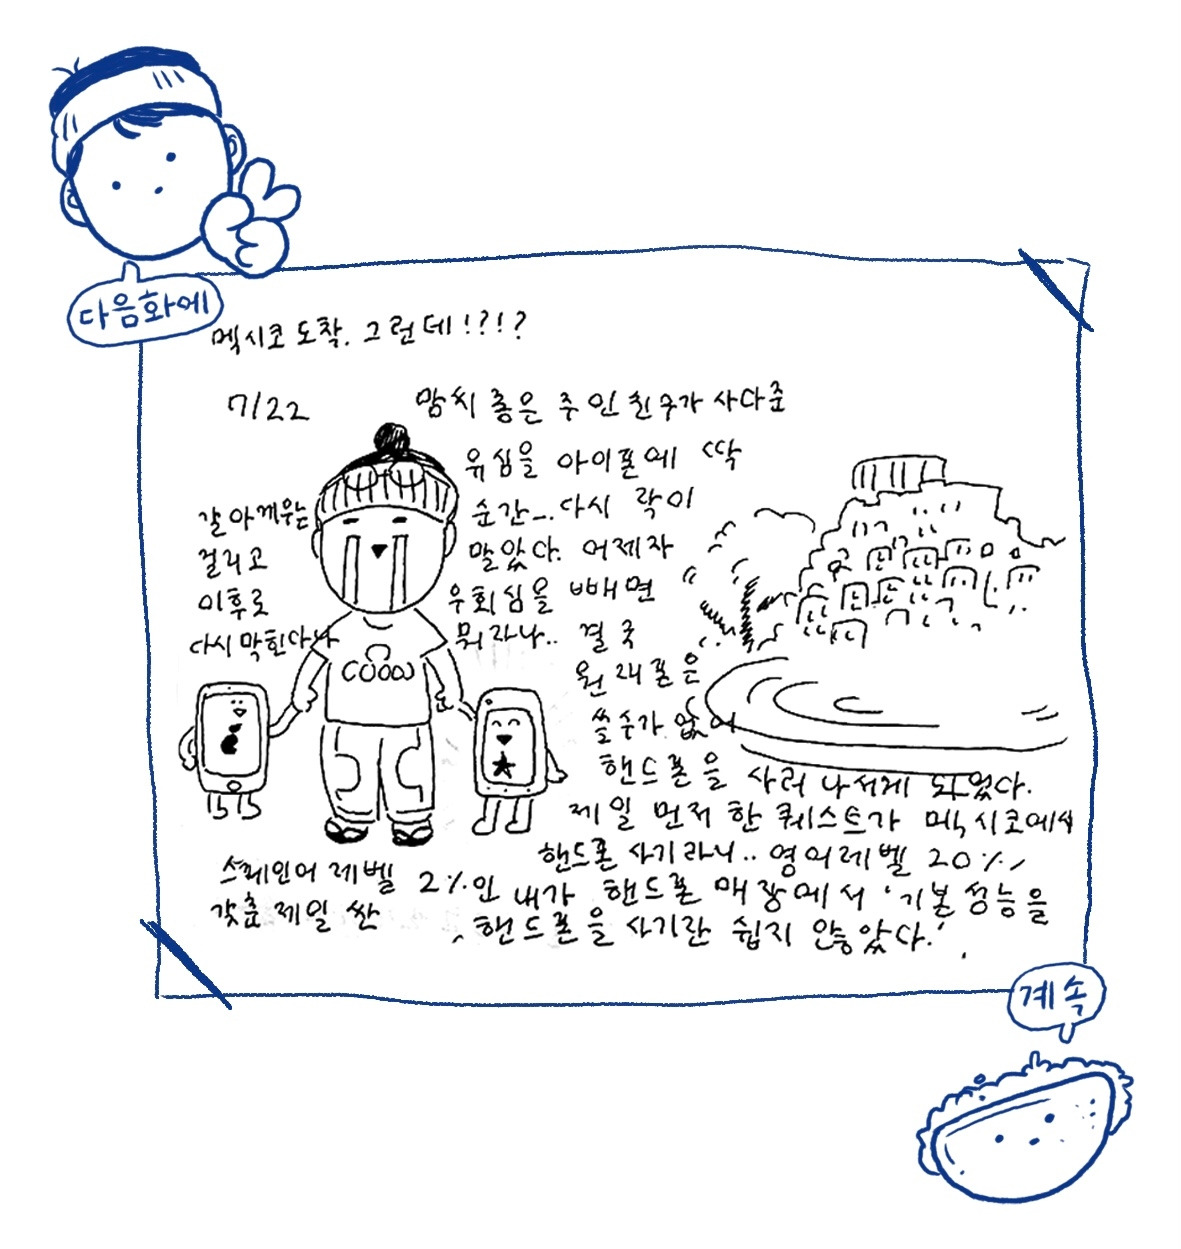 다음화에
멕시코 도착. 그런데!?!?
7/22
맘씨 좋은 주인친구가 사다준
유심을 아이폰에 딱
갈아끼우는 순간... 다시 락이
걸리고 말았다. 어제자
이후로 우회심을 빼면
다시 막힌다나 뭐라나.. 결국
원래폰은
쓸수가 없어
핸드폰을 사러 나서게 되었다.
제일 먼저 한 퀘스트가 멕시코에서
핸드폰 사기라니.. 영어레벨 20%
스페인어 레벨 2%인 내가 핸드폰 매장에서 '기본성능을
갖춘 제일 싼 핸드폰을 사기란 쉽지 않았다.'
계속